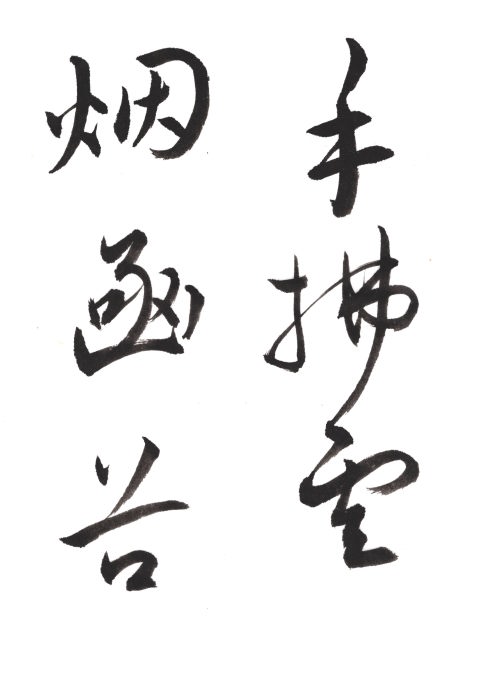 手拂雲
烟函谷